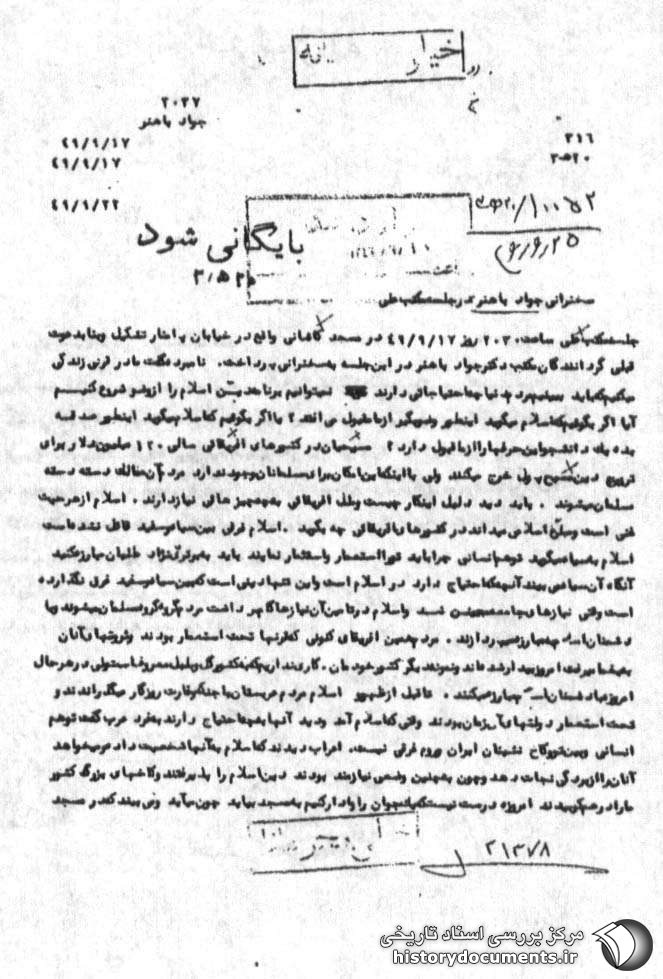 خیلی
۲۰۳۷
جواد باهنر
۴۹/۹/۱۷
۴۹/۹/۱۷
۴۹/۹/۲۲
۳۱۶
۲۰ ﻫ ۳
بایگانی شود
سخنرانی جواد باهنر در جلسه مکتب علی
جلسه مکتب علی ساعت ۲۰۳۰ روز ۴۹/۹/۱۷ در مسجد کاشانی واقع در خیابان تشکیل و بنا بدعوت
قبلی گردانندگان مکتب دکتر جواد باهنر در این جلسه به سخنرانی پرداخت. نامبرده گفت ما در قرنی زندگی
میکنیم که باید ببینیم مردم دنیا چه احتیاجاتی دارند نمیتوانیم برنامه دین اسلام را از وضو شروع کنیم
آیا اگر بگوئیم که اسلام میگوید اینطور وضو بگیر از ما قبول می افتد؟ یا اگر بگوئیم که اسلام میگوید اینطور صدقه
بده یک دانشجو این حرفها را از ما قبول دارد؟ مسیحیان در کشورهای افریقائی سالی ۱۲۰ میلیون دلار برای
ترویج دین مسیح پول خرج میکنند ولی با اینکه این امکان برای مسلمانان وجود ندارد مردم آن ممالک دسته دسته
مسلمان میشوند. باید دید دلیل اینکار چیست و ملل افریقائی به چه چیزهائی نیاز دارند. اسلام از هر حیث
غنی است و مبلغ اسلامی میداند در کشورهای افریقائی چه بگوید. اسلام فرقی بین سیاه و سفید قائل نشده است
اسلام به سیاه میگوید تو هم انسانی چرا باید تو را استعمار و استثمار نمایند باید به برتری نژاد طلبان مبارزه کنید
آنگاه آن سیاه می بیند آنچه که احتیاج دارد در اسلام است و این تنها دینی است که بین سیاه و سفید فرقی نگذارده
است وقتی نیازهای جامعه معین شد و اسلام در تامین آن نیازها گام برداشت مردم گروه گروه مسلمان میشوند و با
دشمنان اسلام به مبارزه می پردازند. مردم همین افریقای کنونی که قرنها تحت استعمار بودند و ثروتهای آنان
به یغما میرفت امروز بیدار شده اند و نمونه دیگر کشور خودمان. کاری نداریم که به کشور گل و بلبل معروف است ولی در هر حال
امروز با دشمنان اسلام مبارزه میکنند. ما قبل از ظهور اسلام مردم عربستان با جنگ و غارت روزگار میگذراندند و
تحت استعمار دولتهای آن زمان بودند وقتی که اسلام آمد و دید آنها به چه احتیاج دارند به فرد عرب گفت تو هم
انسانی و بین تو و کاخ نشینان ایران و روم فرقی نیست. اعراب دیدند که اسلام به آنها شخصیت داد و میخواهد
آنان را از بردگی نجات دهد و چون به چنین وضعی نیازمند بودند دین اسلام را پذیرفتند و کاخهای بزرگ کشور
ما را درهم کوبیدند امروزه درست نیست که یک جوان را وادار کنیم به مسجد بیاید چون میآید و می بیند که در مسجد
۲۱۳۷۸
مرکز بررسی اسناد تاریخی
historydocuments.ir